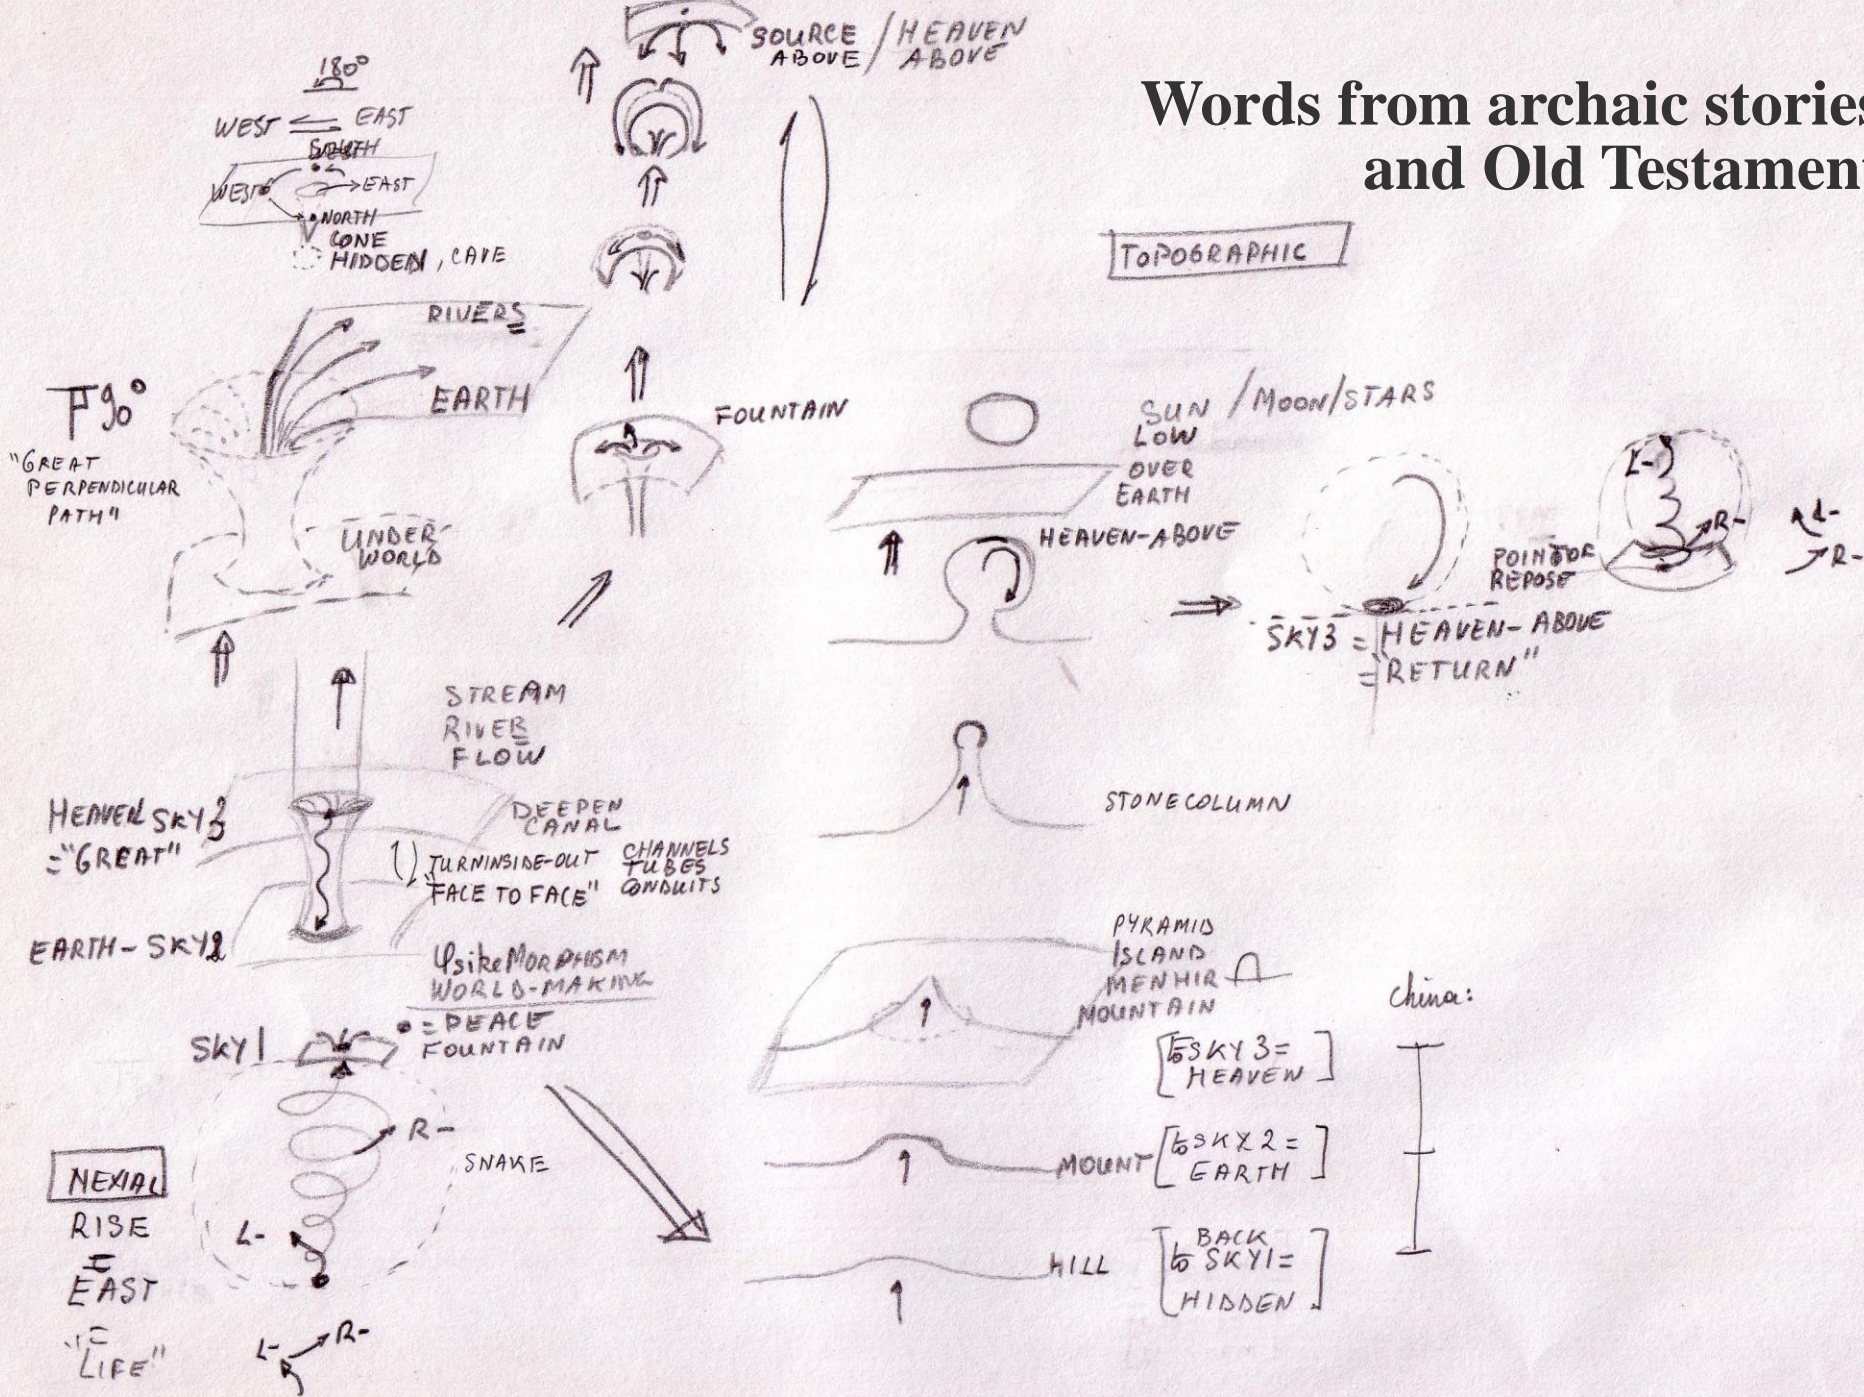 Words from archaic stories
and Old Testament
SOURCE / HEAVEN
ABOVE / ABOVE
180°
WEST EAST
WEST EAST
NORTH
CONE
HIDDEN, CAVE
TOPOGRAPHIC
RIVERS
EARTH
90°
"GREAT
PERPENDICULAR
PATH"
UNDER-
WORLD
FOUNTAIN
SUN / MOON/STARS
LOW
OVER
EARTH
HEAVEN-ABOVE
L-
R-
L-
R-
POINT OF
REPOSE
SKY3 = HEAVEN-ABOVE
= "RETURN"
STREAM
RIVER
FLOW
HEAVEN SKY3
="GREAT"
DEEPEN
CANAL
TURNINSIDE-OUT
"FACE TO FACE"
CHANNELS
TUBES
CONDUITS
EARTH-SKY2
ΨsikeMORPHISM
WORLD-MAKING
= PEACE
FOUNTAIN
SKY1
R-
SNAKE
L-
NEXIAL
RISE
=
EAST
=
"LIFE"
L- R-
STONECOLUMN
PYRAMID
ISLAND
MENHIR
MOUNTAIN
[to SKY 3=
HEAVEN]
MOUNT [to SKY 2=
EARTH]
HILL [BACK
to SKY1=
HIDDEN]
China: